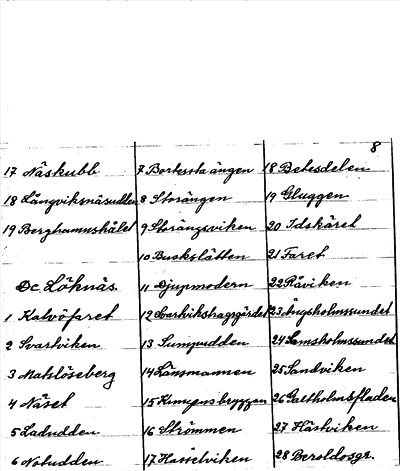 8
17 Näskubb
18 Långviksnäsudden
19 Berghamnshålet
Dc. Löknäs.
1 Kalvöfaret
2 Svartviken
3 Matslöseberg
4 Näset
5 Ladudden
6 Notudden
7 Bortersta ängen
8 Storängen
9 Storängsviken
10 Buskslätten
11 Djupmodern
12 Svartvikshagsgärdet
13 Sumpudden
14 Länsmannen
15 Kungens bryggan
16 Strömmen
17 Hasselviken
18 Betesdelen
19 Gluggen
20 Idskäret
21 Faret
22 Råviken
23 Ängsholmssundet
24 Lamsholmssundet
25 Sandviken
26 Galtholmsfladen
27 Hästviken
28 Beroldosgr.